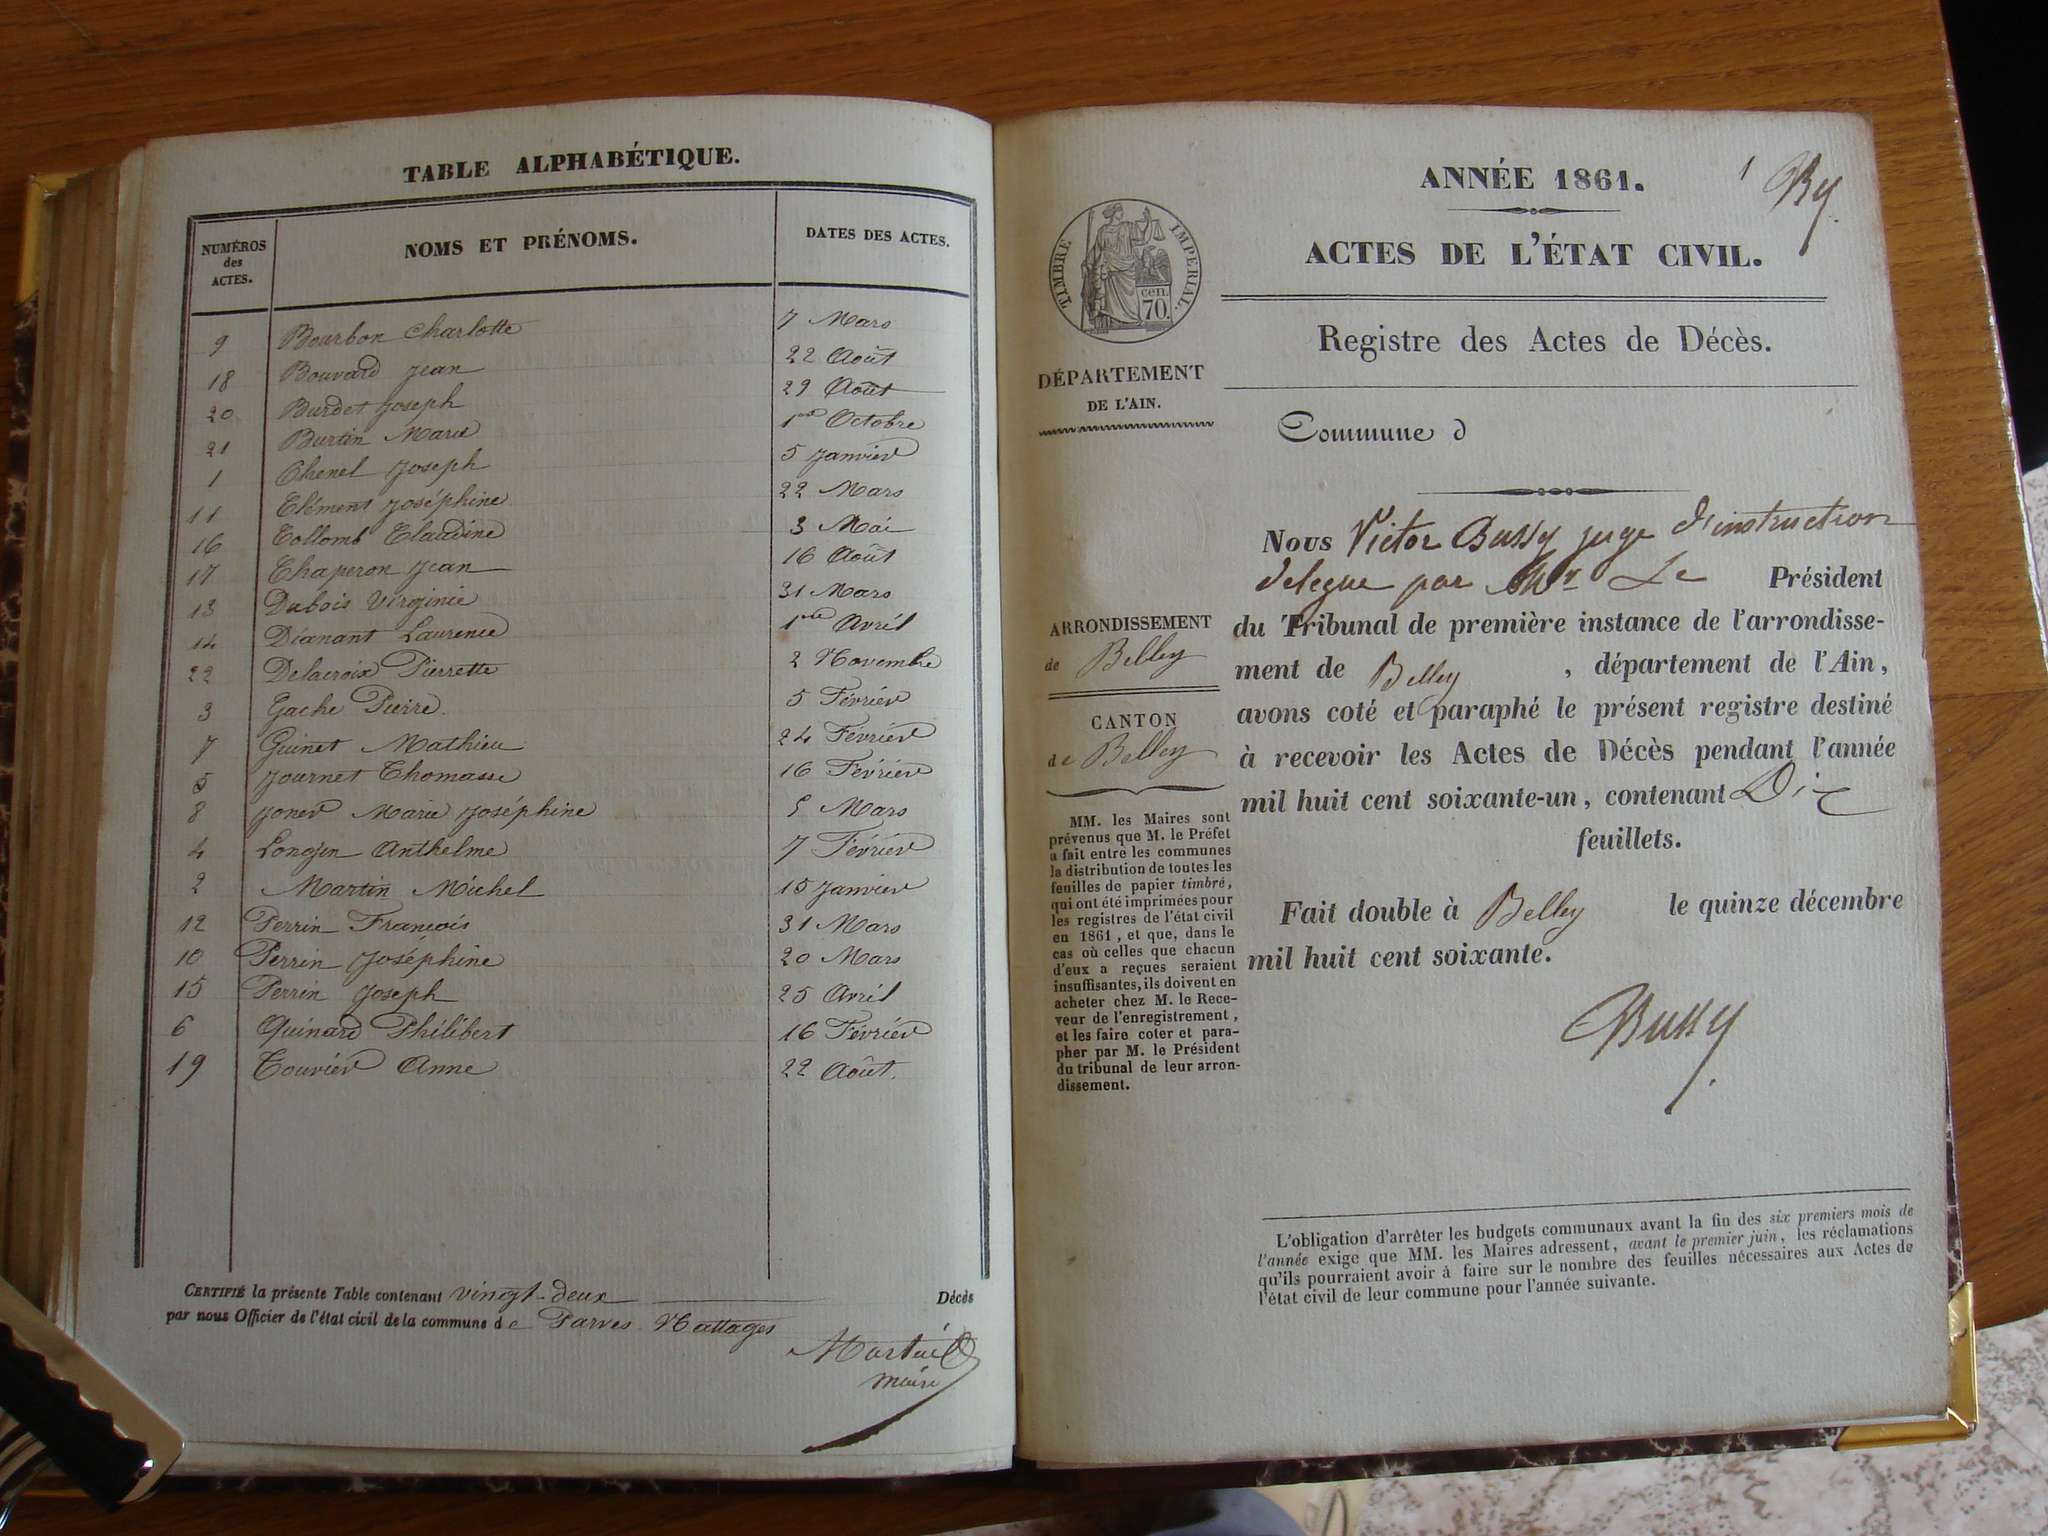 TABLE ALPHABÉTIQUE.
NUMÉROS des ACTES. NOMS ET PRÉNOMS. DATES DES ACTES.
9 Bourbon Charlotte 7 Mars
18 Bouvard Jean 22 Août
20 Burdet Joseph 29 Août
21 Burtin Marie 1er Octobre
1 Chenel Joseph 5 Janvier
11 Clément Joséphine 22 Mars
16 Collomb Claudine 3 Mai
17 Chaperon Jean 16 Août
13 Dubois Virginie 31 Mars
14 Dianant Laurence 1er Avril
22 Delacroix Pierrette 2 Novembre
3 Gache Pierre. 5 Février
7 Guinet Mathieu 24 Février
5 Journet Thomasse 16 Février
8 Joner Marie Joséphine 5 Mars
4 Longin Anthelme 7 Février
2 Martin Michel 15 Janvier
12 Perrin François 31 Mars
10 Perrin Joséphine 20 Mars
15 Perrin Joseph 25 Avril
6 Quinard Philibert 16 Février
19 Touvier Anne 22 Août.
CERTIFIÉ la présente Table contenant vingt-deux Décès
par nous Officier de l'état civil de la commune de Parves Nattages
maire
ANNÉE 1861. 1 By.
ACTES DE L'ÉTAT CIVIL.
TIMBRE IMPÉRIAL.
cen.
70.
Registre des Actes de Décès.
DÉPARTEMENT
DE L'AIN.
Commune d
Nous Victor Bussy juge d'instruction
delegue par Mr Le Président
du Tribunal de première instance de l'arrondisse-
ment de Belley , département de l'Ain,
avons coté et paraphé le présent registre destiné
à recevoir les Actes de Décès pendant l'année
mil huit cent soixante-un, contenant Dix
feuillets.
Fait double à Belley le quinze décembre
mil huit cent soixante.
Bussy
ARRONDISSEMENT
de Belley
CANTON
de Belley
MM. les Maires sont
prévenus que M. le Préfet
a fait entre les communes
la distribution de toutes les
feuilles de papier timbré,
qui ont été imprimées pour
les registres de l'état civil
en 1861, et que, dans le
cas où celles que chacun
d'eux a reçues seraient
insuffisantes, ils doivent en
acheter chez M. le Rece-
veur de l'enregistrement,
et les faire coter et para-
pher par M. le Président
du tribunal de leur arron-
dissement.
L'obligation d'arrêter les budgets communaux avant la fin des six premiers mois de
l'année exige que MM. les Maires adressent, avant le premier juin, les réclamations
qu'ils pourraient avoir à faire sur le nombre des feuilles nécessaires aux Actes de
l'état civil de leur commune pour l'année suivante.